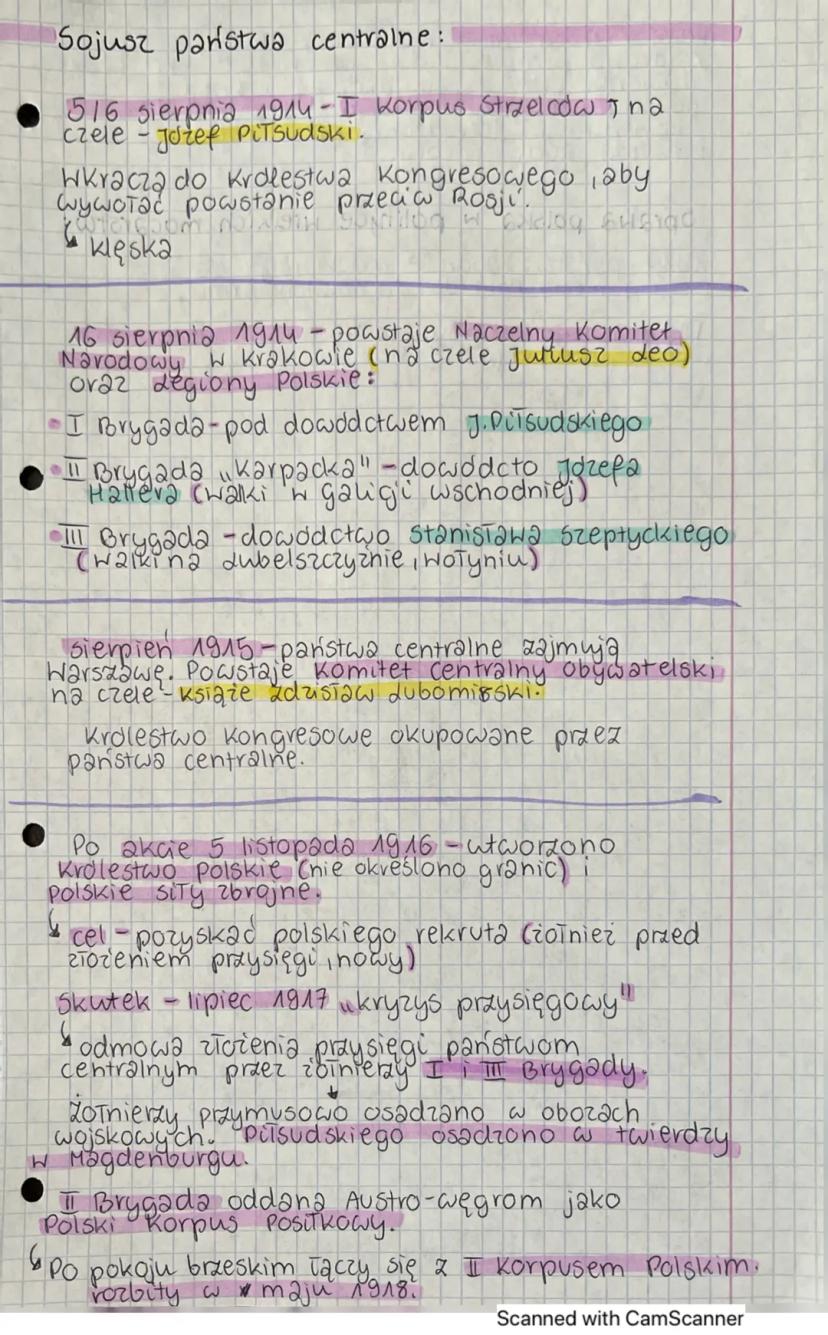 Sojusz państwa centralne:
5/6 sierpnia 1914 - I Korpus Strzelców, na
czele - Józef Piłsudski.
Wkraczą do Królestwa Kongresowego, aby
wywołać powstanie przeciw Rosji.
↳ klęska
16 sierpnia 1914 - powstaje Naczelny Komitet
Narodowy w Krakowie (na czele Juliusz Leo)
oraz Legiony Polskie:
• I Brygada - pod dowództwem J. Piłsudskiego
• II Brygada „Karpacka" - dowództo Józefa
Hallera (walki w galicji wschodniej)
• III Brygada - dowództwo Stanisława Szeptyckiego
(walki na Lubelszczyźnie, Wołyniu)
sierpień 1915 - państwa centralne zajmują
Warszawę. Powstaje Komitet Centralny Obywatelski
na czele - książe Zdzisław Lubomirski.
Królestwo Kongresowe okupowane przez
państwa centralne.
Po akcie 5 listopada 1916 - utworzono
Królestwo Polskie (nie określono granic) i
polskie siły zbrojne.
↳ cel - pozyskać polskiego rekruta (żołnież przed
złożeniem przysięgi, nowy)
Skutek - lipiec 1917 „kryzys przysięgowy"
↳ odmowa złożenia przysięgi państwom
centralnym przez żołnierzy I i III Brygady.
↓
Żołnierzy przymusowo osadzano w obozach
wojskowych. Piłsudskiego osadzono w twierdzy
w Magdenburgu.
II Brygada oddana Austro-węgrom jako
Polski Korpus Posiłkowy.
↳ Po pokoju brzeskim łączy się z II Korpusem Polskim.
rozbity w maju 1918.
Scanned with CamScanner